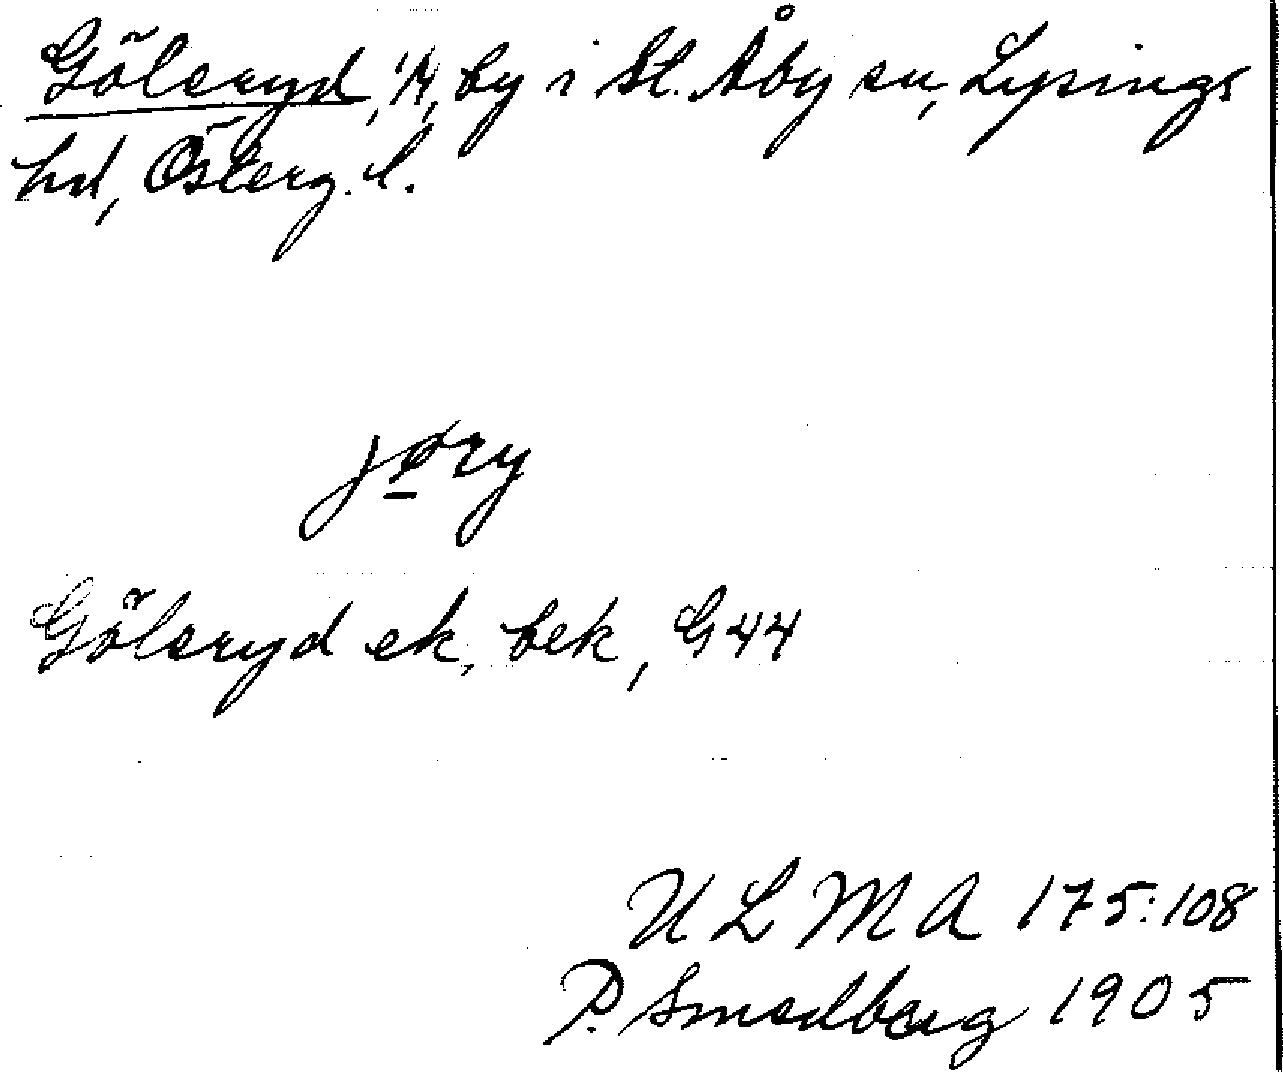 Gölsryd, 1/1, by i St. Åby sn, Lysings
hd, Österg. l.
jøry
Gölsryd ek. bek, G 44
U L M A 175:108
P. Smedberg 1905